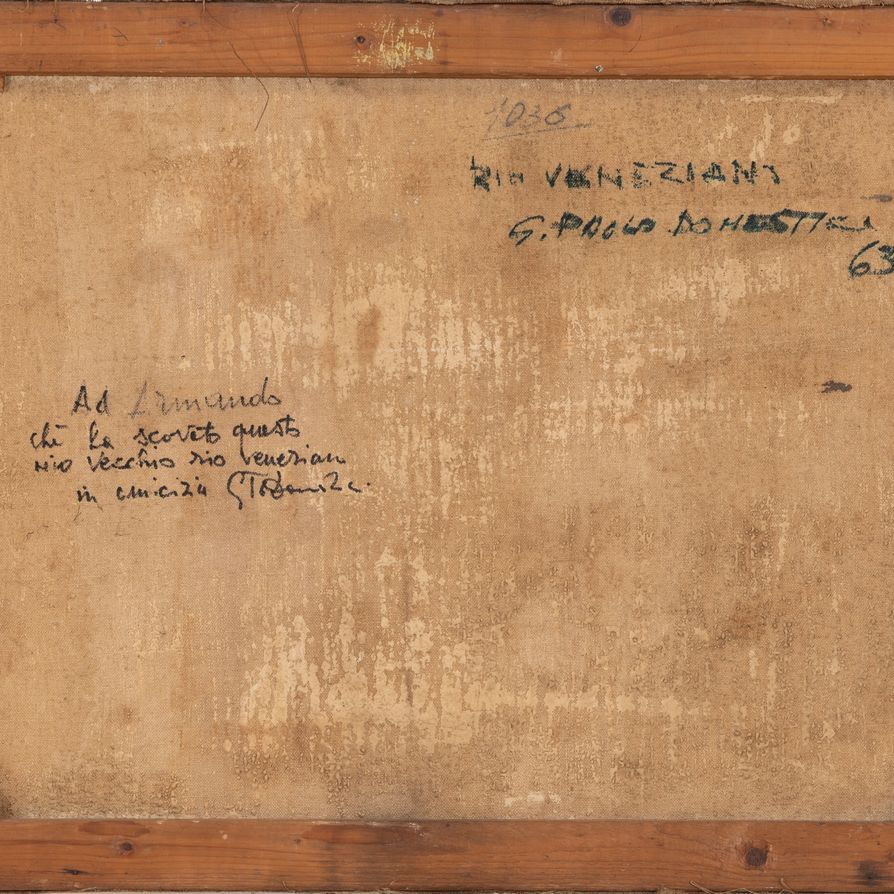 1036
RIO VENEZIANO
G. PAOLO DOMESTICI
63
Ad Armando
che ha scovato questo
mio vecchio rio veneziano
in amicizia